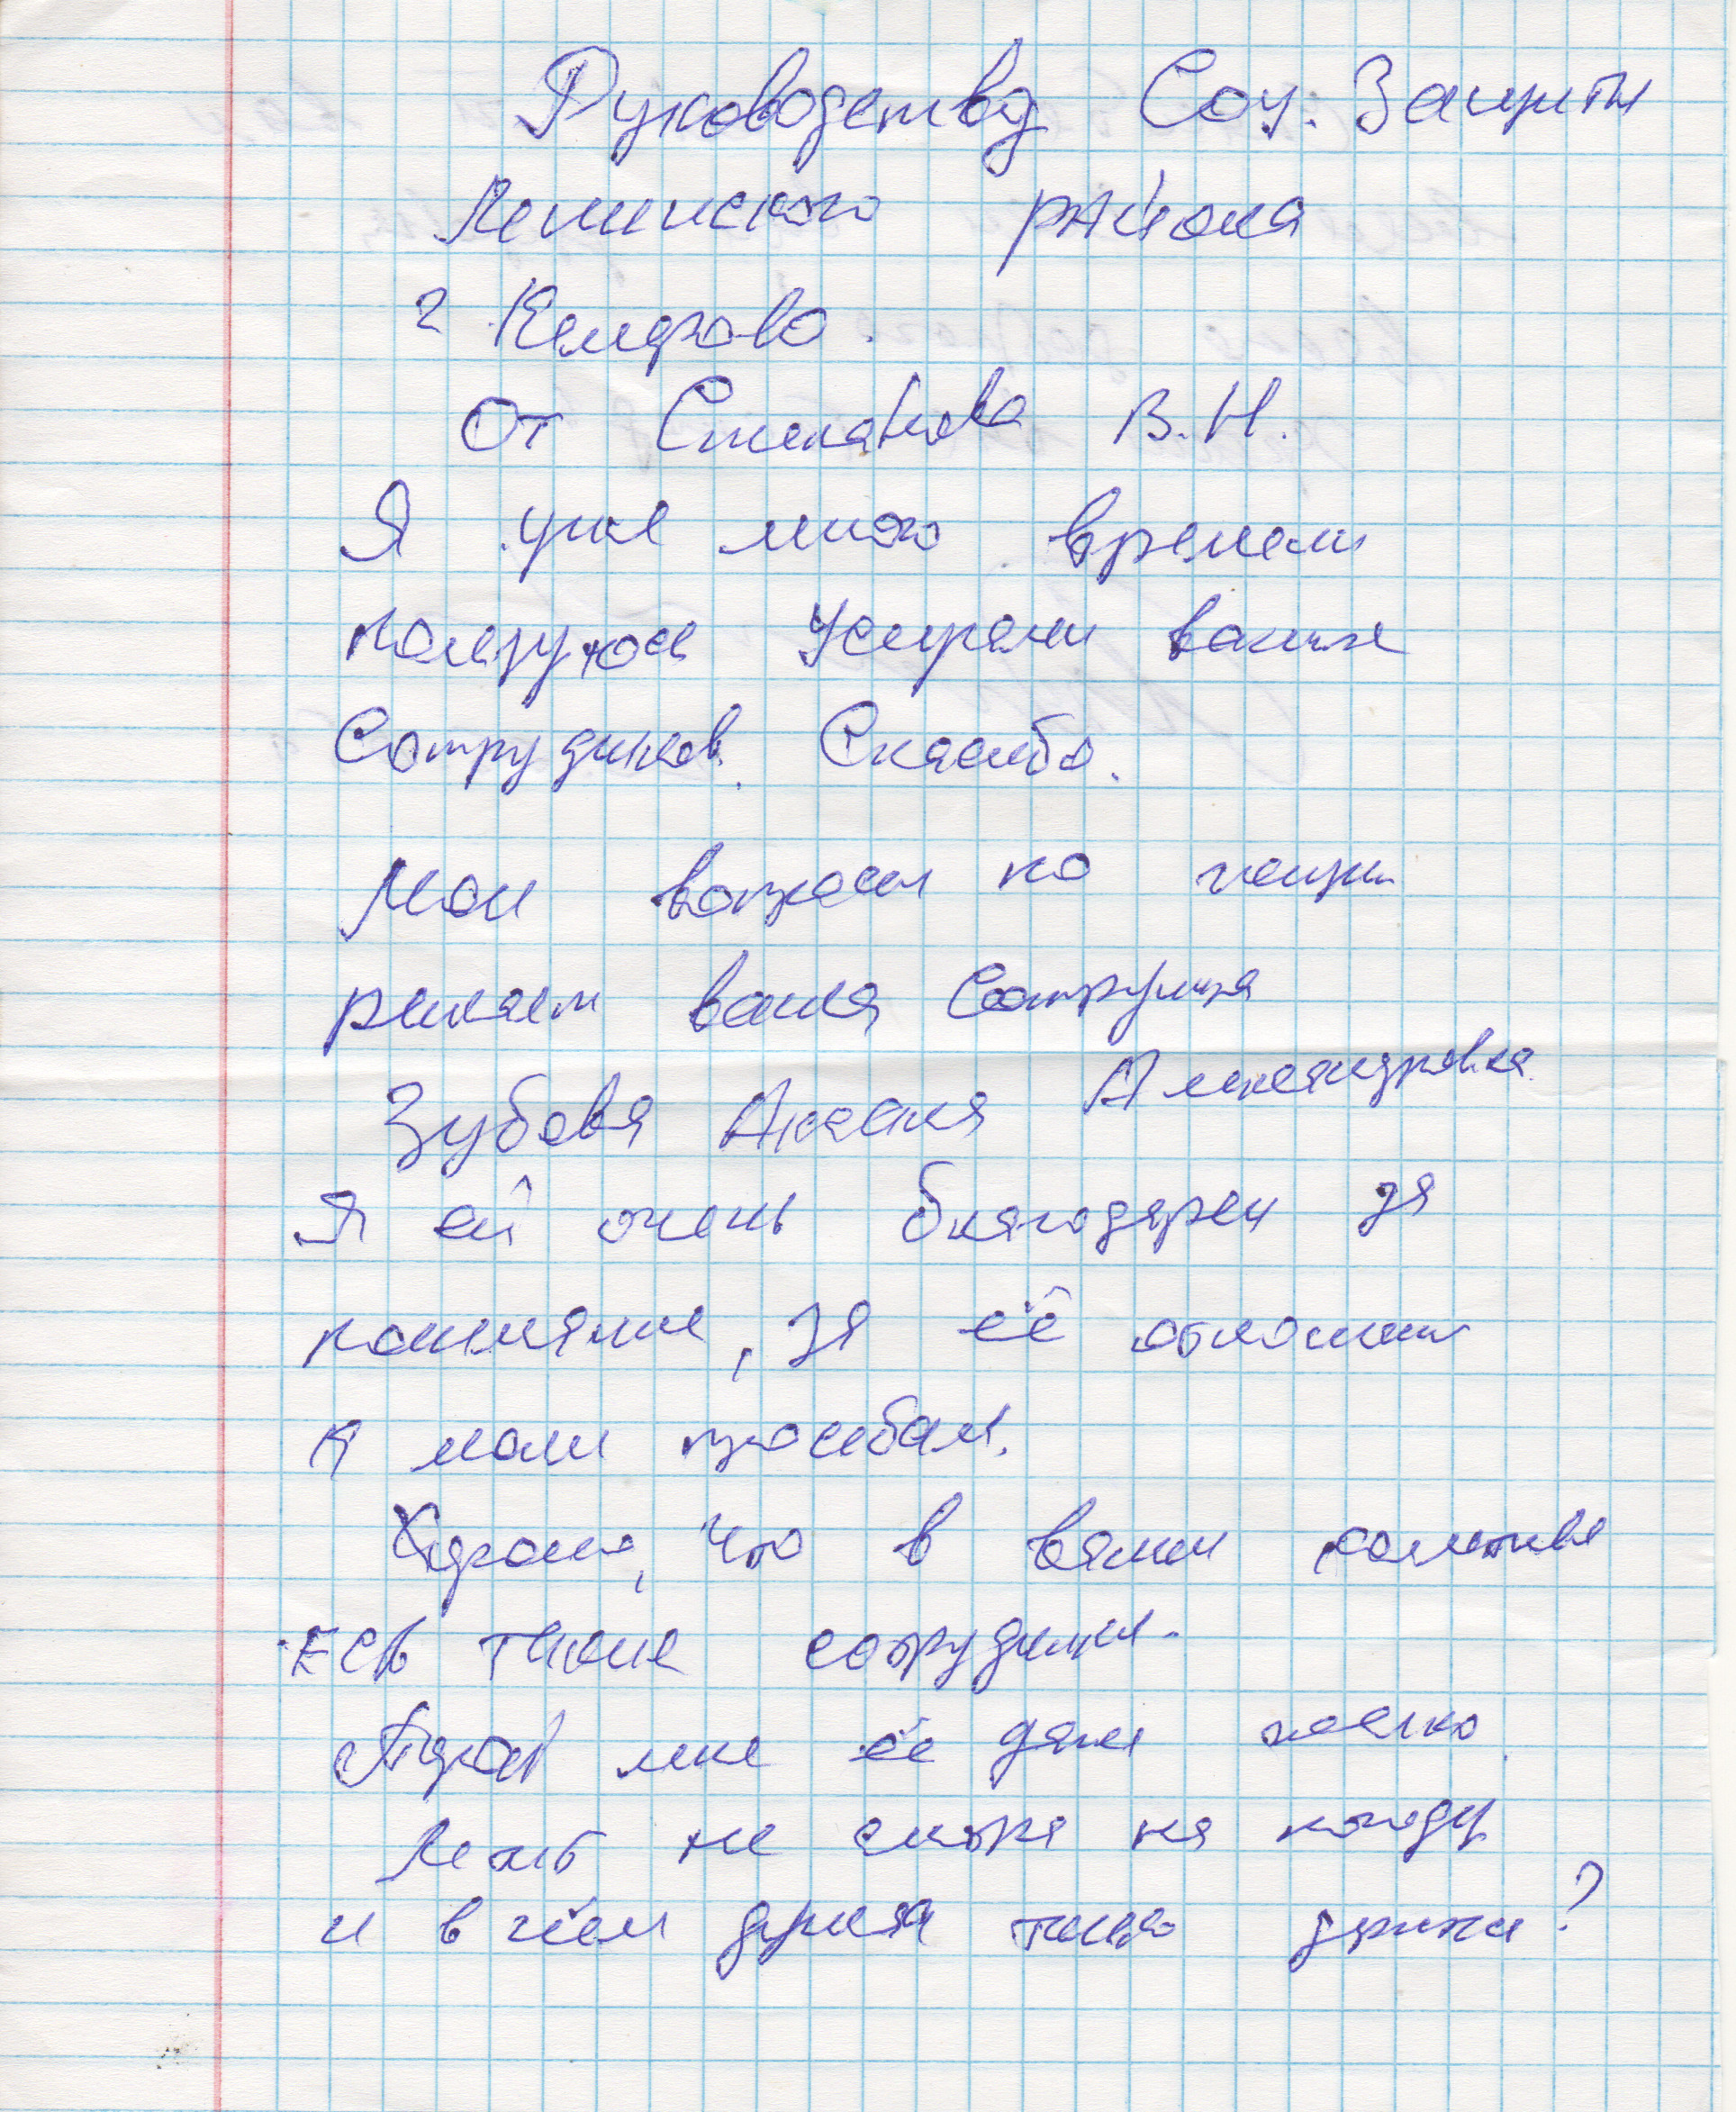 Руководству Соц. Защиты
Ленинского района
г Кемерово.
От Степанова В.Н.
Я уже много времени
пользуюсь Услугами ваших
Сотрудников. Спасибо.
Мои вопросы по
решает ваша Сотрудница
Зубова Александровна
Я ей очень благодарен за
понимание, за её отношение
к моим просьбам.
Хорошо, что в вашем коллективе
Есть такие сотрудники.
мне её даже
не на погоду
и в чём душа только держится?